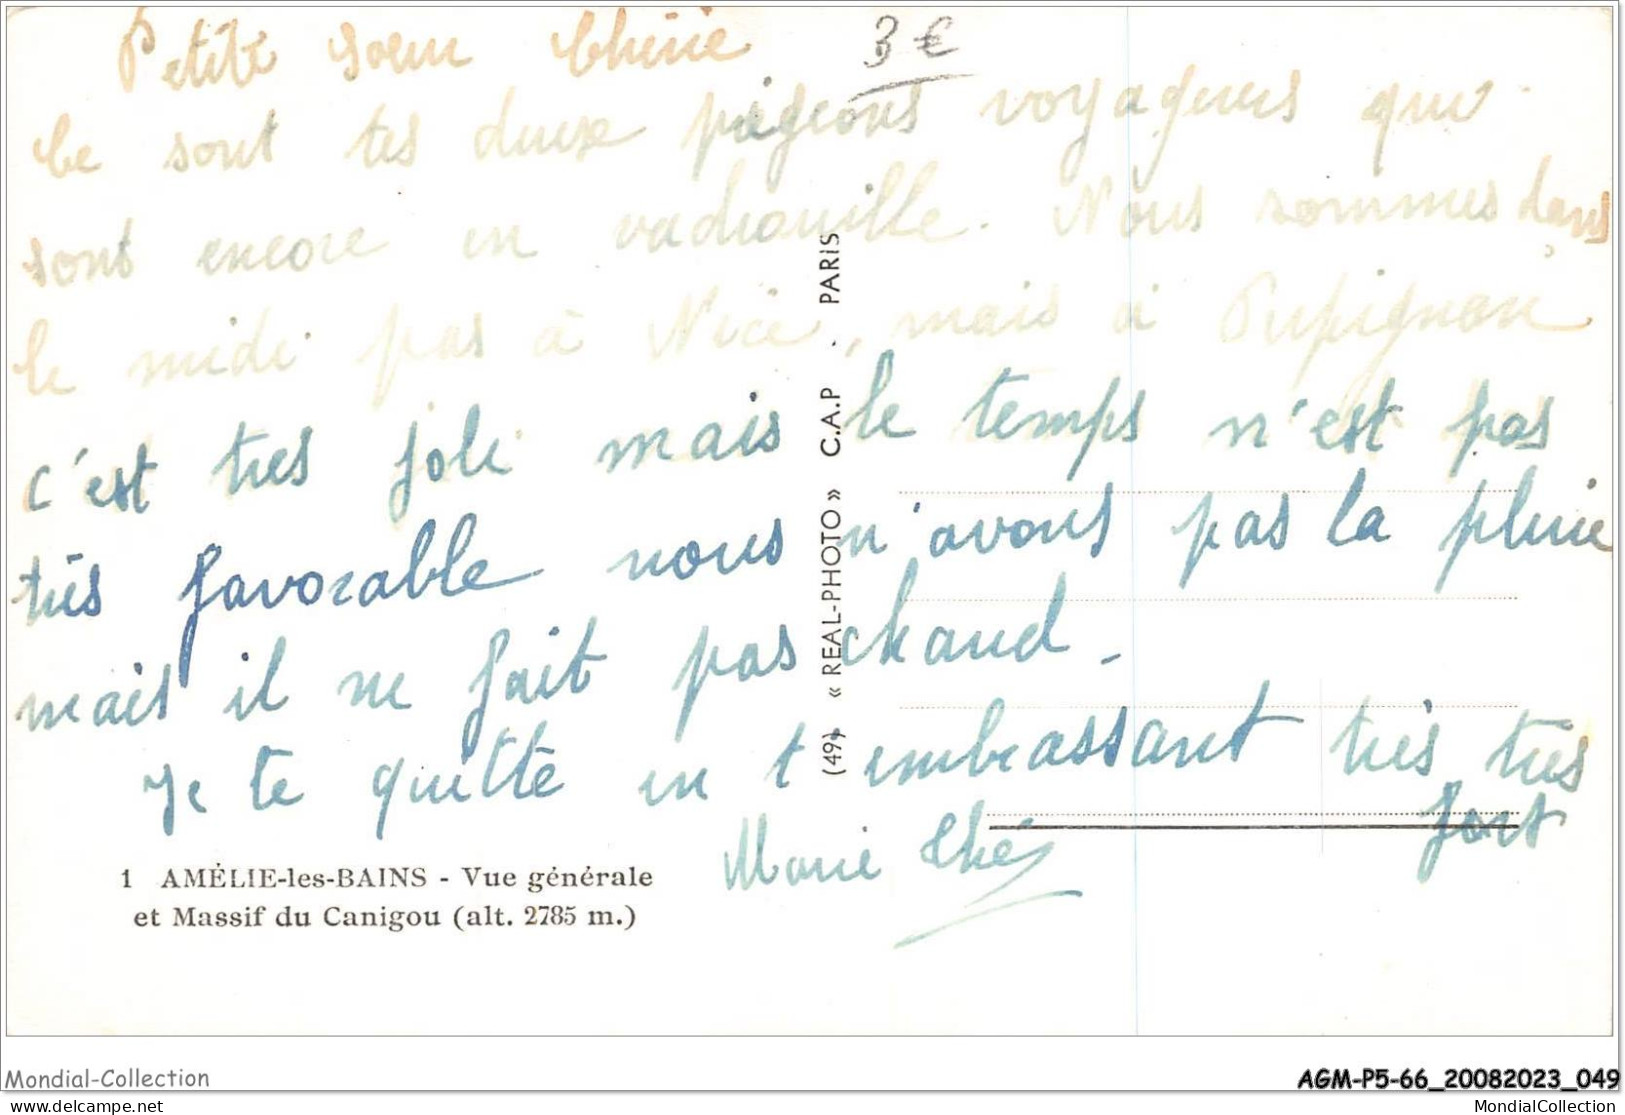 Petite soeur chérie
3 €
Ce sont tes deux pigeons voyageurs qui
sont encore en vadrouille. Nous sommes dans
le midi pas à Nice, mais à Perpignan
c'est très joli mais le temps n'est pas
très favorable nous n'avons pas la pluie
mais il ne fait pas chaud -
Je te quitte en t'embrassant très très
fort
Marie Thé
(49) « REAL-PHOTO » C.A.P. PARIS
1 AMÉLIE-les-BAINS - Vue générale
et Massif du Canigou (alt. 2785 m.)
Mondial-Collection
AGM-P5-66_20082023_049
delcampe.net
MondialCollection